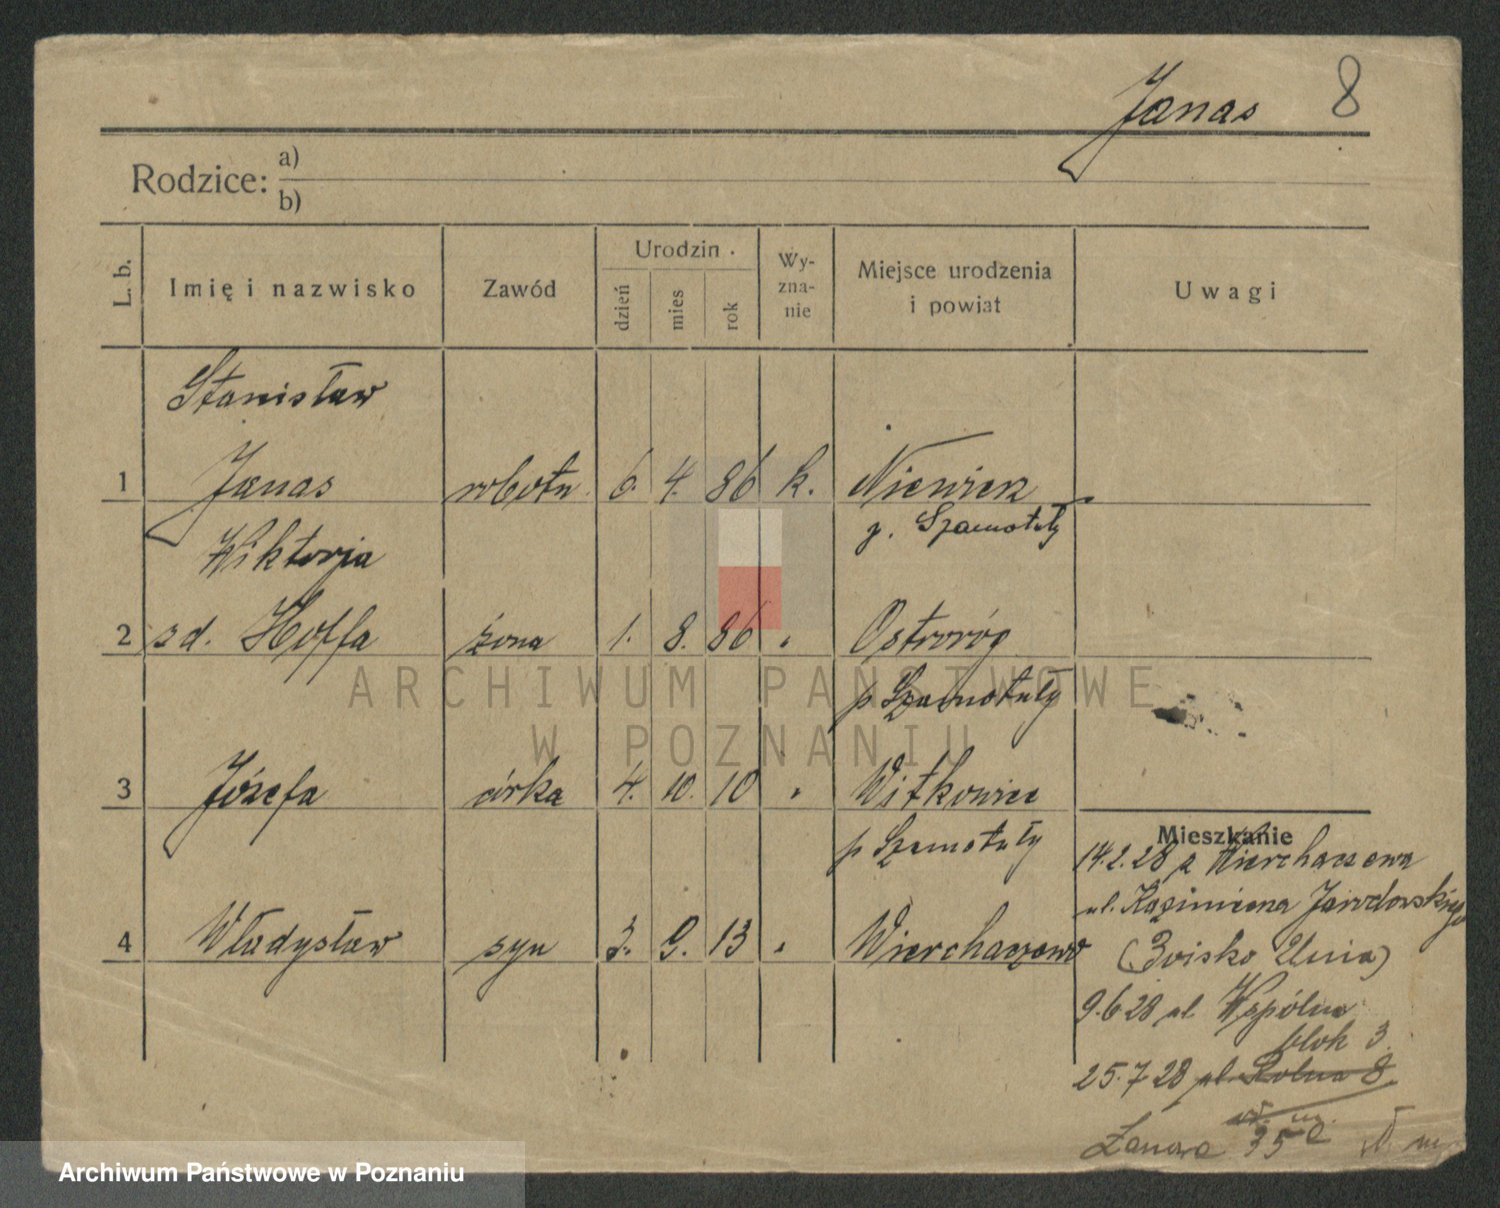 Janas 8
Rodzice: a)
b)
L. b. Imię i nazwisko Zawód Urodzin. dzień mies rok Wy-zna-nie Miejsce urodzenia i powiat Uwagi
Stanisław
1 Janas robotn. 6. 4. 86 k. Niewierz
p. Szamotuły
Wiktorja
2 zd. Hoffa żona 1. 8. 86 " Ostroróg
p Szamotuły
3 Józefa córka 4. 10. 10 " Witkowice
p Szamotuły
4 Władysław syn 3. 9. 13 " Wierchaczewo
Mieszkanie
14.2.28 z Wierchaczewa
ul. Kazimierza Jarochowskiego
(Boisko Unia)
9.6.28 ul Wspólna
blok 3.
25.7.28 ul. Rolna 8.
35
ARCHIWUM PAŃSTWOWE
W POZNANIU
Archiwum Państwowe w Poznaniu